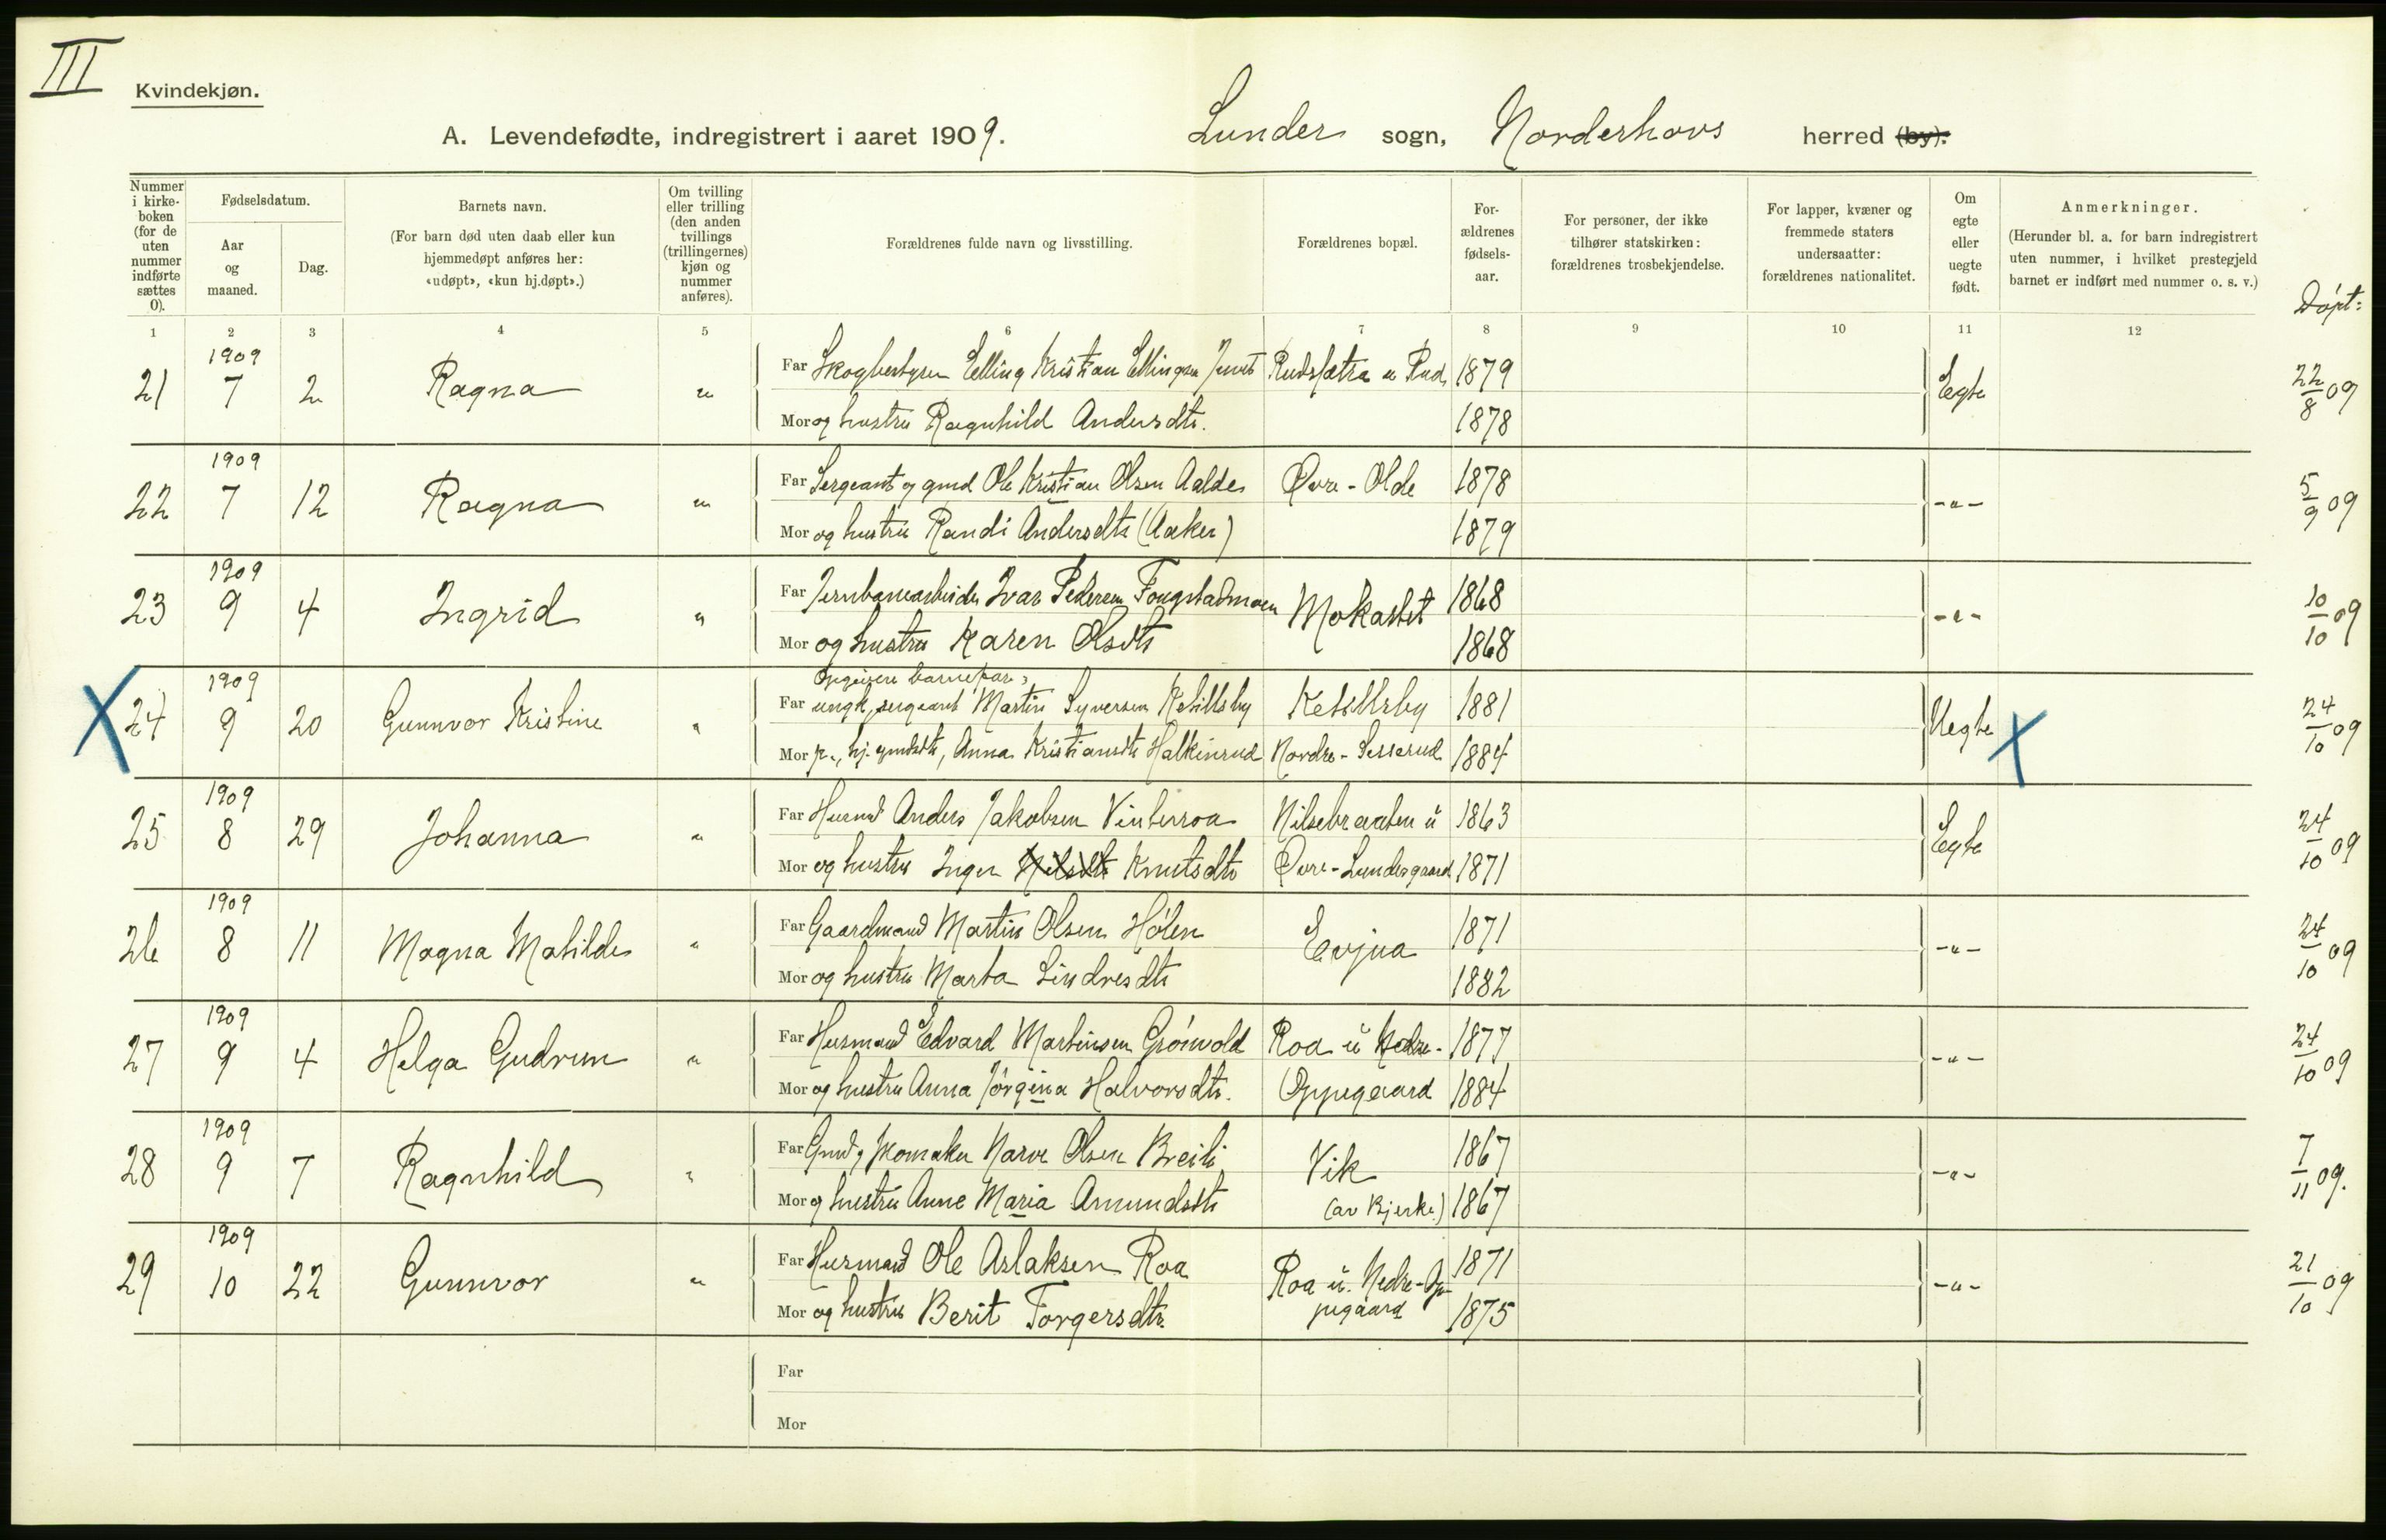 III
Kvindekjøn.
A. Levendefødte, indregistrert i aaret 1909. Lunder sogn, Norderhovs herred (by).
Nummer i kirke-boken (for de uten nummer indførte sættes 0).
Fødselsdatum.
Aar og maaned.
Dag.
Barnets navn.
(For barn død uten daab eller kun hjemmedøpt anføres her: «udøpt», «kun hj.døpt».)
Om tvilling eller trilling (den anden tvillings (trillingernes) kjøn og nummer anføres).
Forældrenes fulde navn og livsstilling.
Forældrenes bopæl.
For-ældrenes fødsels-aar.
For personer, der ikke tilhører statskirken: forældrenes trosbekjendelse.
For lapper, kvæner og fremmede staters undersaatter: forældrenes nationalitet.
Om egte eller uegte født.
Anmerkninger.
(Herunder bl. a. for barn indregistrert uten nummer, i hvilket prestegjeld barnet er indført med nummer o. s. v.)
Døpt:
1 2 3 4 5 6 7 8 9 10 11 12
21 1909 7 2 Ragna " Far Skogbestyrer Elling Kristian Ellingsen 1879 Egte 22/8 09
Mor og hustru Ragnhild Andersdtr. 1878
22 1909 7 12 Ragna " Far Sergeant og gmd Ole Kristian Olsen Aalde Øvre-Olde 1878 -"- 5/9 09
Mor og hustru Randi Andersdtr (Aaker) 1879
23 1909 9 4 Ingrid " Far Jernbanearbeider Ivar Pedersen Fougstadmoen Mokastet 1868 -"- 10/10 09
Mor og hustru Karen Olsdtr 1868
Opgivne barnefar:
X 24 1909 9 20 Gunnvor Kristine " Far ungk, sergeant Martin Syversen Ketillsby Ketillsby 1881 Uegte X 24/10 09
Mor p., hj. gmdsdtr, Anna Kristiansdtr Halkinrud Nordre-Sesserud 1884
25 1909 8 29 Johanna " Far Husmd Anders Jakobsen Vinterroa Nilsebraaten u 1863 Egte 24/10 09
Mor og hustru Inger Nilsdtr Knutsdtr Øvre-Lundesgaard 1871
26 1909 8 11 Magna Matilde " Far Gaardmand Martin Olsen Hølen Evjua 1871 -"- 24/10 09
Mor og hustru Marta Sindresdtr 1882
27 1909 9 4 Helga Gudrun " Far Husmand Edvard Martinsen Grønvold Roa u Nedre- 1877 -"- 24/10 09
Mor og hustru Anna Jørgina Halvorsdtr. Oppegaard 1884
28 1909 9 7 Ragnhild " Far Gmd, skomaker Narve Olsen Breili Vik 1867 -"- 7/11 09.
Mor og hustru Anne Maria Amundsdtr (av Bjerke) 1867
29 1909 10 22 Gunnvor " Far Husmand Ole Aslaksen Roa Roa u. Nedre-Op- 1871 -"- 21/10 09
Mor og hustru Berit Torgersdtr. pegaard 1875
Far
Mor